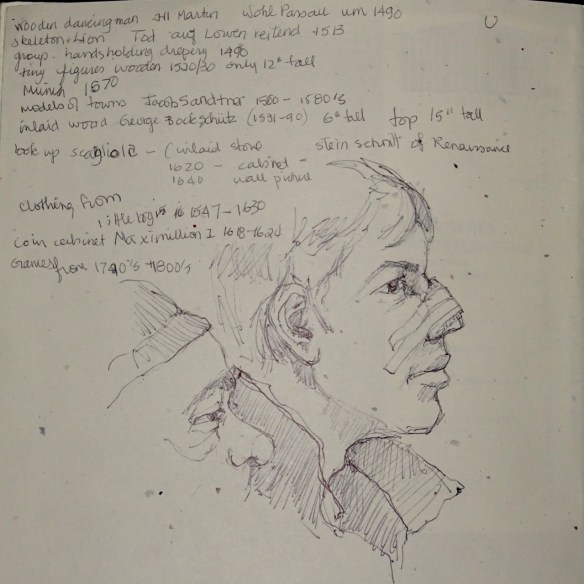 wooden dancing man St Martin Wohl Passau um 1490
skeleton + Lion Tod auf Lowen reitend 1513
group. hands holding drapery 1490
tiny figures wooden 1520/30 only 12" tall
Munich 1570
models of towns Jacob Sandtner 1560 - 1580's
inlaid wood George Bockschütz (1591-90) 6" tall top 15" tall
look up scagliola - (inlaid stone stein schnitt of Renaissance
1620 - cabinet -
1640 wall picture
clothing from
little 1547 - 1630
coin cabinet Maximillion I 1618-1620
Games from 1740's + 1800's